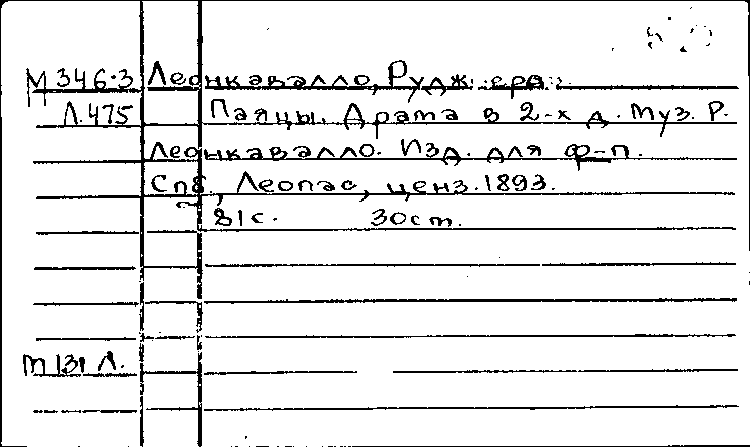 М 346.3 Леонкавалло, Руджиеро.
Л.475 Паяцы. Драма в 2-х д. Муз. Р.
Леонкавалло. Изд. для ф-п.
Спб, Леопас, ценз. 1893.
81 с. 30 ст.
М 131 Л.